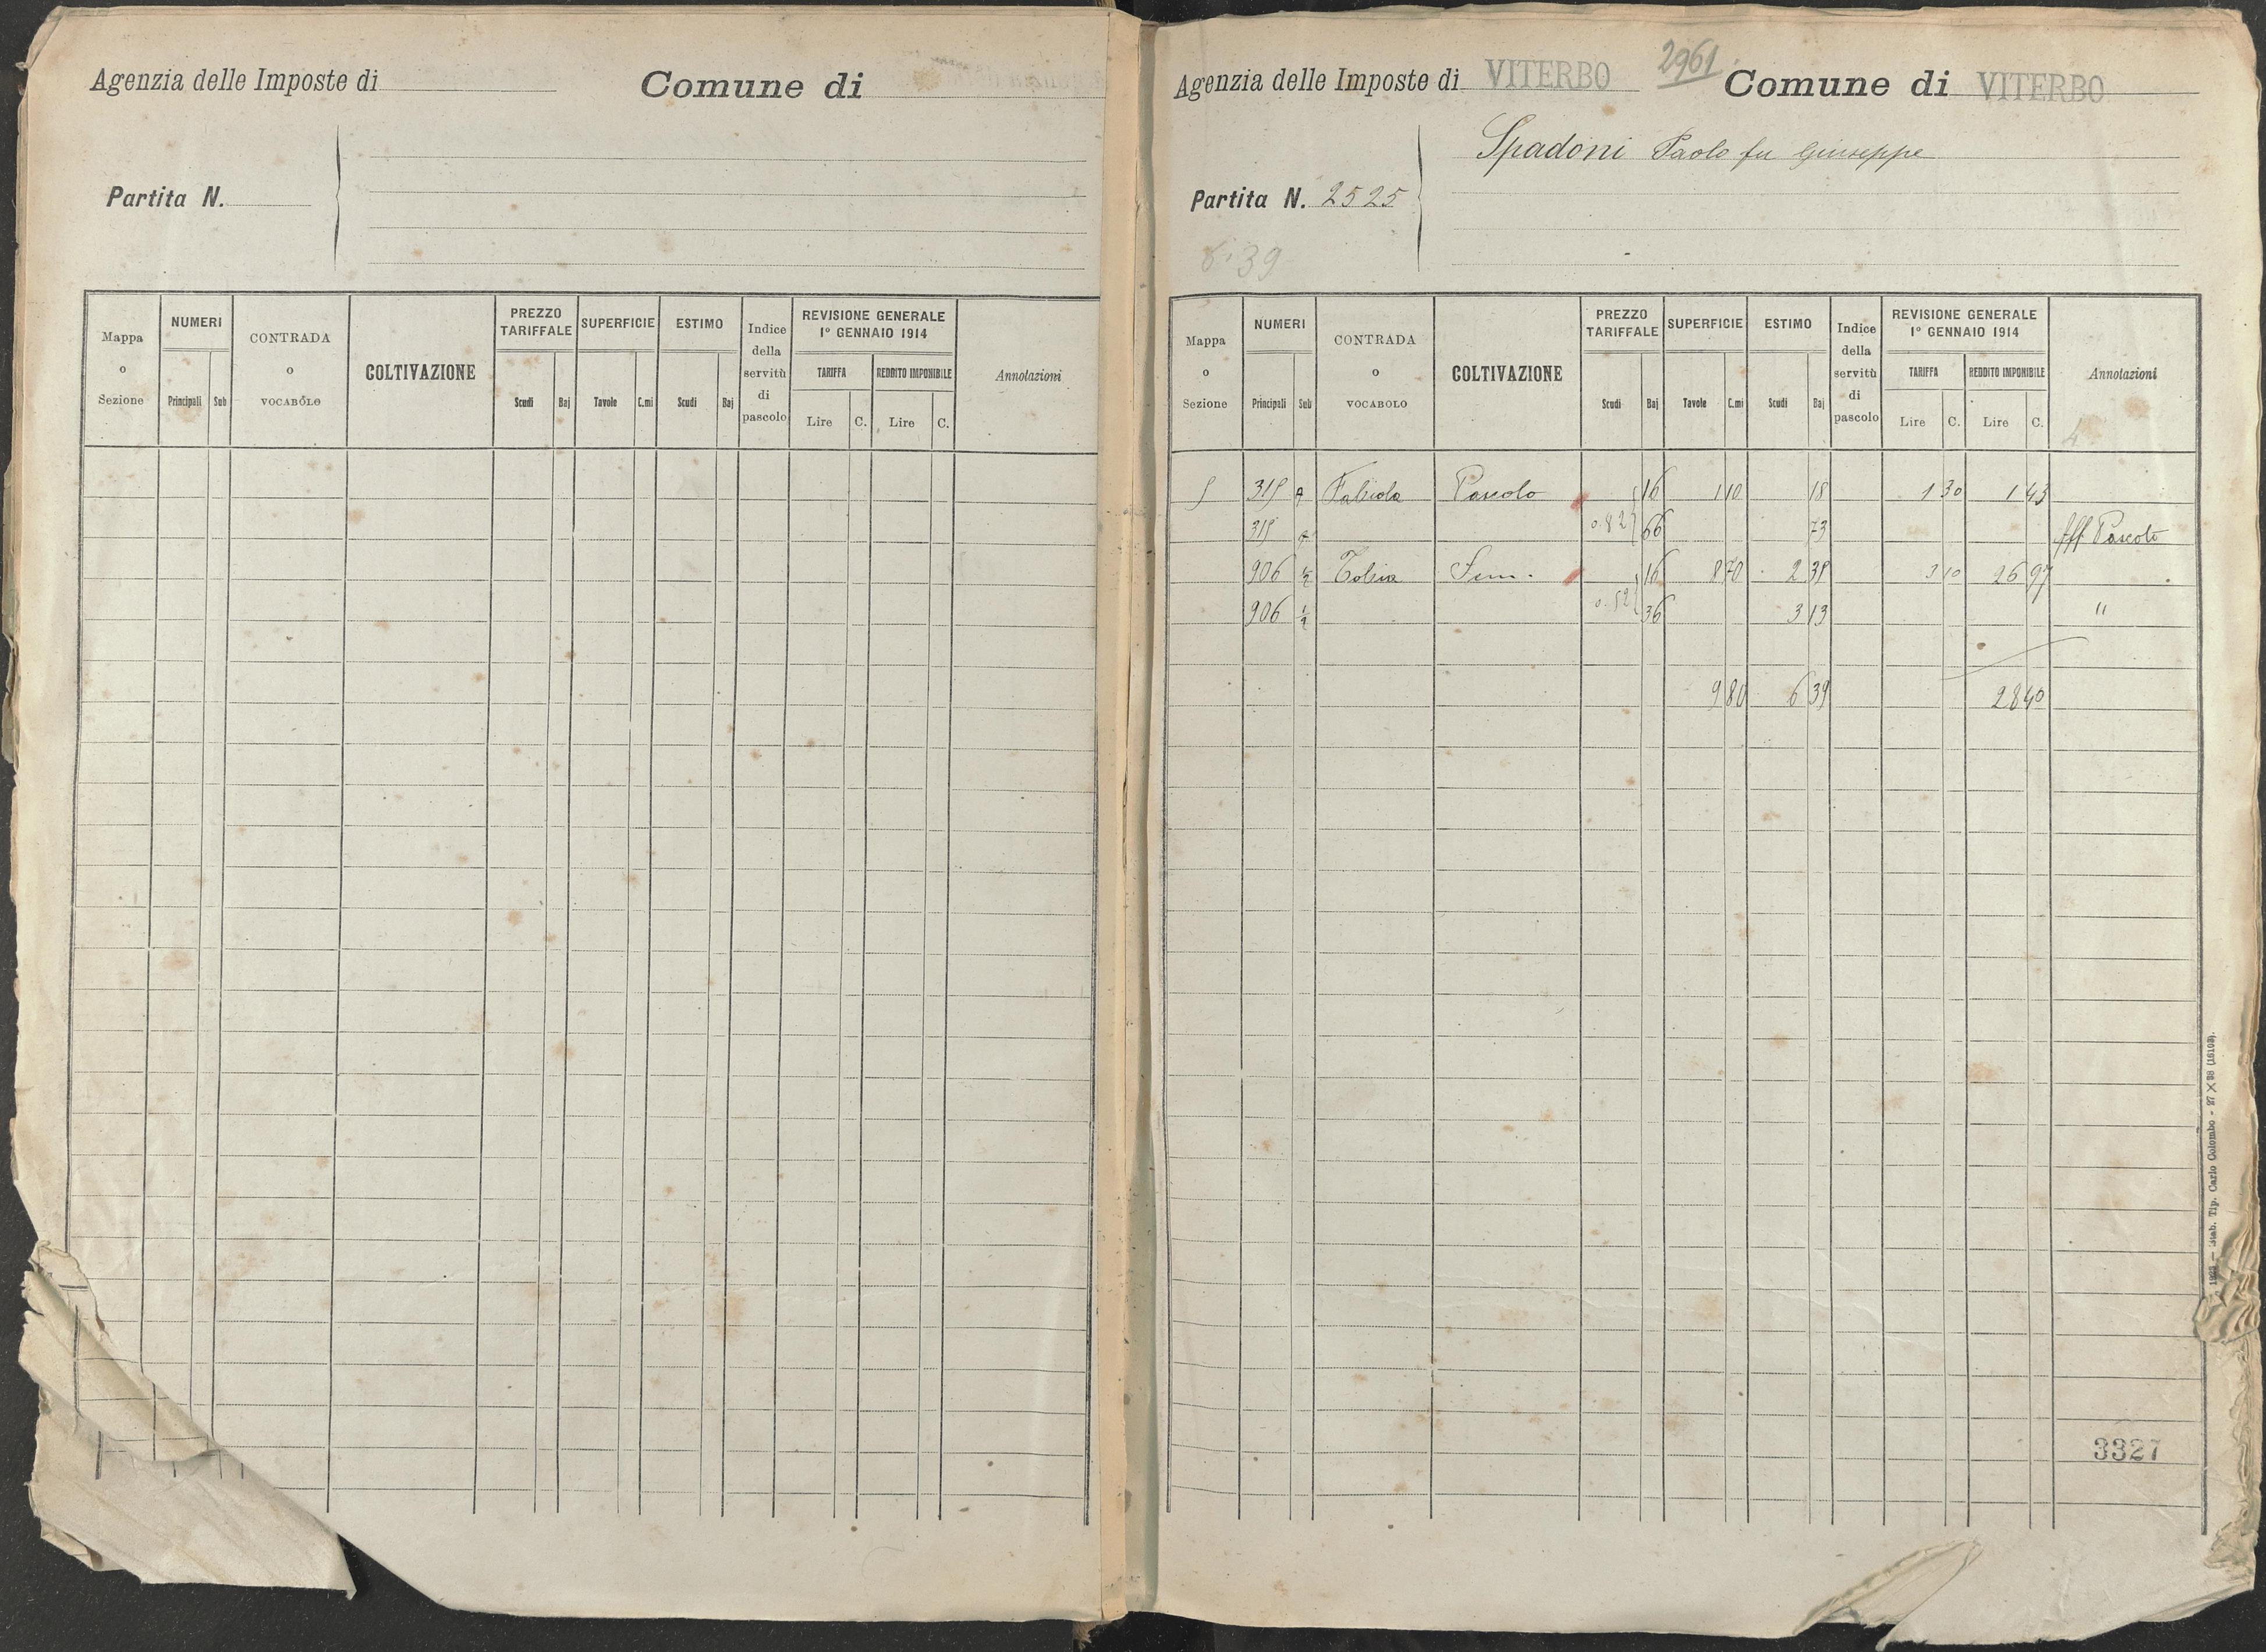 Agenzia delle Imposte di
Comune di
Partita N.
Mappa o Sezione
NUMERI
Principali Sub
CONTRADA o VOCABOLO
COLTIVAZIONE
PREZZO TARIFFALE
Scudi Baj
SUPERFICIE
Tavole C.mi
ESTIMO
Scudi Baj
Indice della servitù di pascolo
REVISIONE GENERALE
1° GENNAIO 1914
TARIFFA REDDITO IMPONIBILE
Lire C. Lire C.
Annotazioni
2961
Agenzia delle Imposte di VITERBO Comune di VITERBO
Spadoni Paolo fu Giuseppe
Partita N. 2525
6.39
Mappa o Sezione
NUMERI
Principali Sub
CONTRADA o VOCABOLO
COLTIVAZIONE
PREZZO TARIFFALE
Scudi Baj
SUPERFICIE
Tavole C.mi
ESTIMO
Scudi Baj
Indice della servitù di pascolo
REVISIONE GENERALE
1° GENNAIO 1914
TARIFFA REDDITO IMPONIBILE
Lire C. Lire C.
Annotazioni
4
Pascolo 16 1 10 18 1 30 1 43
0.82 66 73 Aff Pascolo
906 1/2 Sem. 16 8 70 3 10 26 97
906 1/2 0.52 36 3 13 "
9 80 6 39 28 40
3327
1925 — Stab. Tip. Carlo Colombo - 27 X 38 (16103).